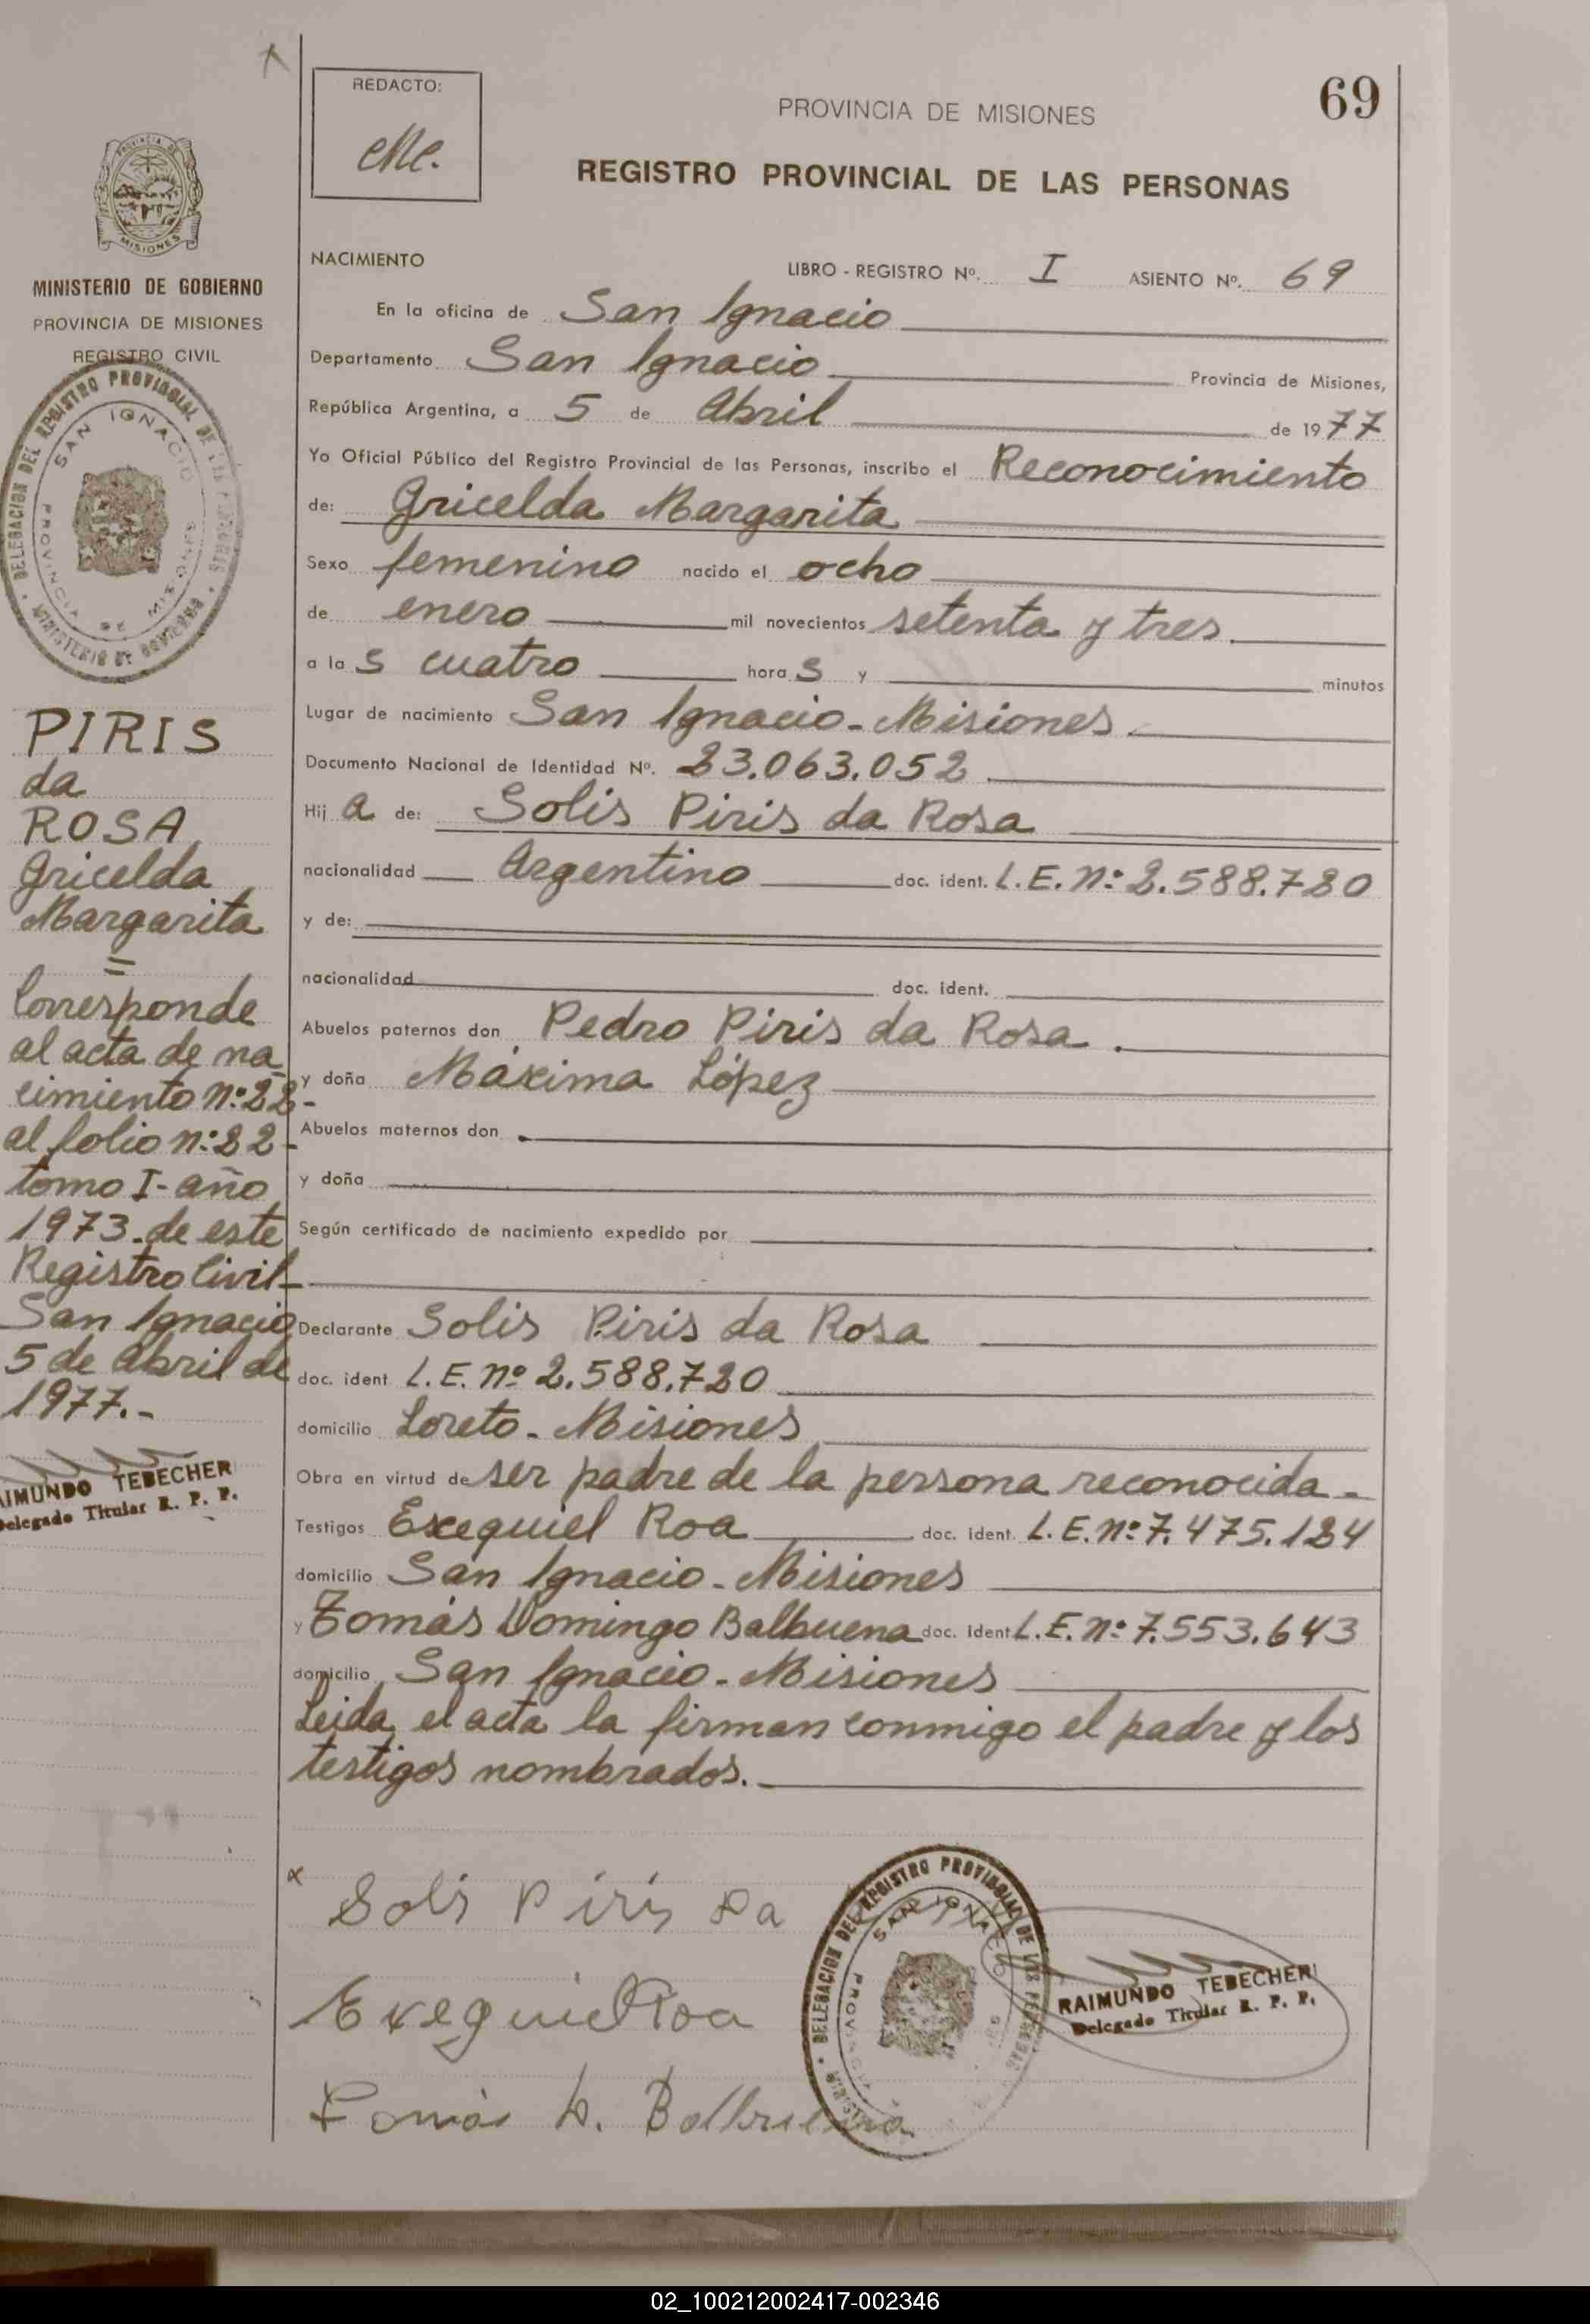 69
REDACTO:
PROVINCIA DE MISIONES
REGISTRO PROVINCIAL DE LAS PERSONAS
PROVINCIA DE
MISIONES
MINISTERIO DE GOBIERNO
PROVINCIA DE MISIONES
REGISTRO CIVIL
DELEGACION DEL REGISTRO PROVINCIAL DE LAS PERSONAS
MINISTERIO DE GOBIERNO
SAN IGNACIO
PROVINCIA DE MISIONES
PIRIS
da
ROSA
Gricelda
Margarita
Corresponde
al acta de na
cimiento nº 22-
al folio nº 22-
tomo I-año
1973.de este
Registro Civil-
San Ignacio
5 de Abril de
1977.-
RAIMUNDO TEBECHERI
Delegado Titular R. P. P.
NACIMIENTO LIBRO - REGISTRO Nº. I ASIENTO Nº. 69
En la oficina de San Ignacio
Departamento San Ignacio Provincia de Misiones,
República Argentina, a 5 de Abril de 1977
Yo Oficial Público del Registro Provincial de las Personas, inscribo el Reconocimiento
de: Gricelda Margarita
Sexo femenino nacido el ocho
de enero mil novecientos setenta y tres.
a las cuatro horas y minutos
Lugar de nacimiento San Ignacio-Misiones.
Documento Nacional de Identidad Nº. 23.063.052
Hija de: Solis Piris da Rosa
nacionalidad Argentino doc. ident. L.E.nº 2.588.720
y de:
nacionalidad doc. ident.
Abuelos paternos don Pedro Piris da Rosa.
y doña Máxima López
Abuelos maternos don
y doña
Según certificado de nacimiento expedido por
Declarante Solis Piris da Rosa
doc. ident L.E.nº 2.588.720
domicilio Loreto-Misiones
Obra en virtud de ser padre de la persona reconocida-
Testigos Exequiel Roa doc. ident. L.E.nº 7.475.124
domicilio San Ignacio-Misiones
y Tomás Domingo Balbuena doc. ident L.E.nº 7.553.643
domicilio San Ignacio-Misiones
Leida el acta la firman conmigo el padre y los
testigos nombrados.
x Solis Piris Da
Exequiel Roa
Tomás D. Balbuena
DELEGACION DEL REGISTRO PROVINCIAL DE LAS PERSONAS
SAN IGNACIO
RAIMUNDO TEBECHERI
Delegado Titular R. P. P.
02_100212002417-002346